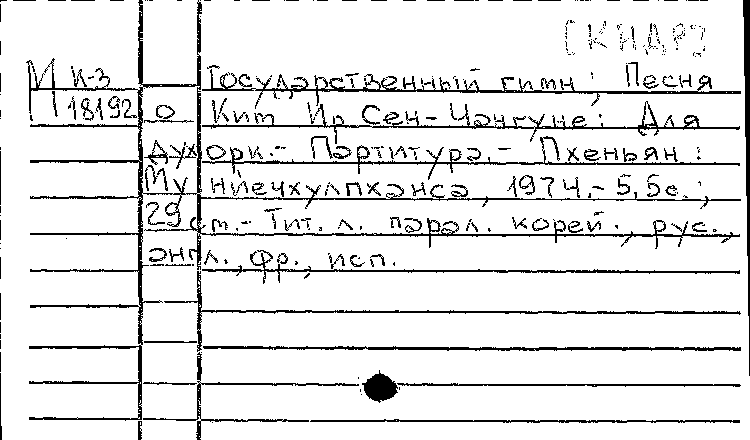 [КНДР]
М К-3 Государственный гимн; Песня
18192 о Ким Ир Сен-Чангуне: Для
дух. орк.- Партитура.- Пхеньян:
Мунйечхулпханса, 1974.- 5,5с.;
29см.- Тит. л. парал. корей., рус.,
англ., фр., исп.